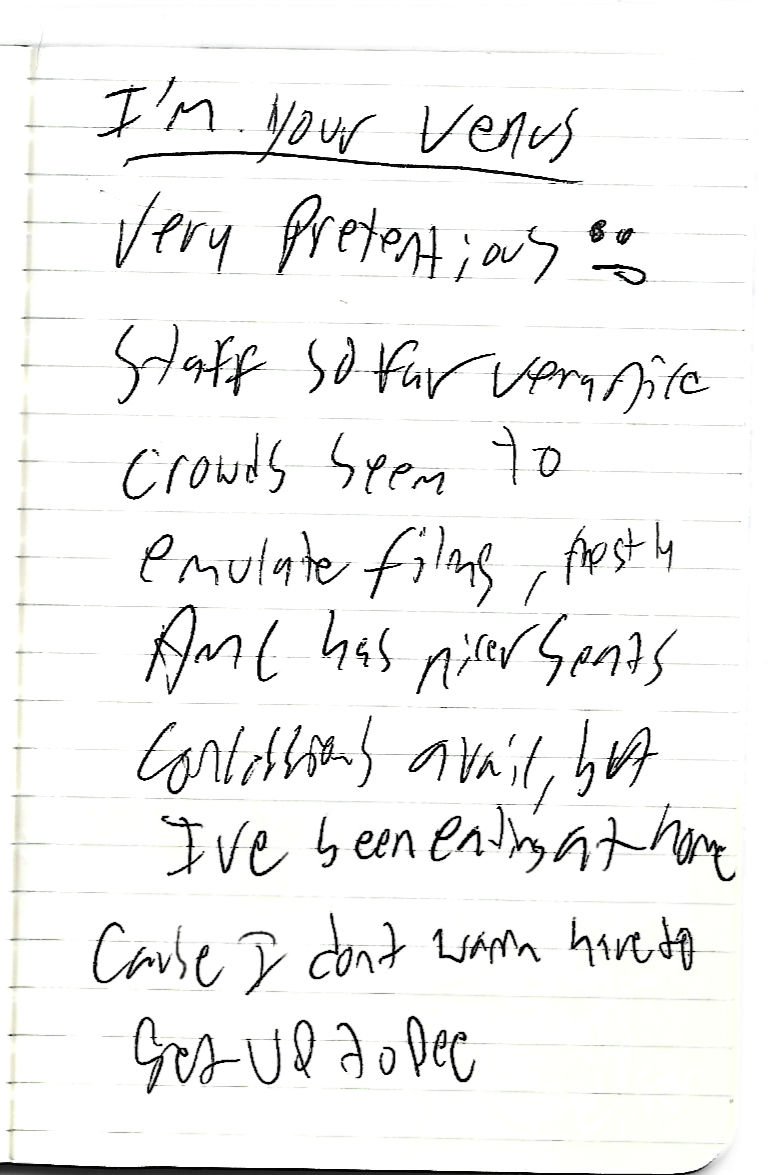 I'm Your Venus
Very Pretentious
Staff so far very nice
Crowds seem to
emulate films, mostly
AMC has nicer seats
Concessions avail, but
I've been eating at home
Cause I dont wanna have to
Get up to pee